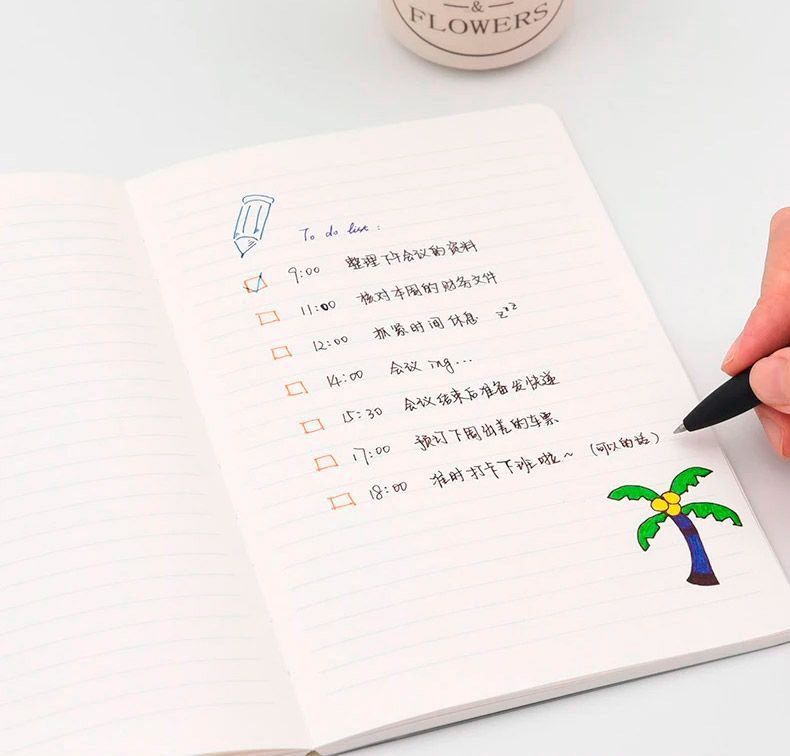 &
FLOWERS
To do list:
9:00 整理下午会议的资料
11:00 核对本周的财务文件
12:00 抓紧时间休息 zzz
14:00 会议 ing...
15:30 会议结束后准备发快递
17:00 预订下周出差的车票
18:00 准时打卡下班啦~ (可以的话)